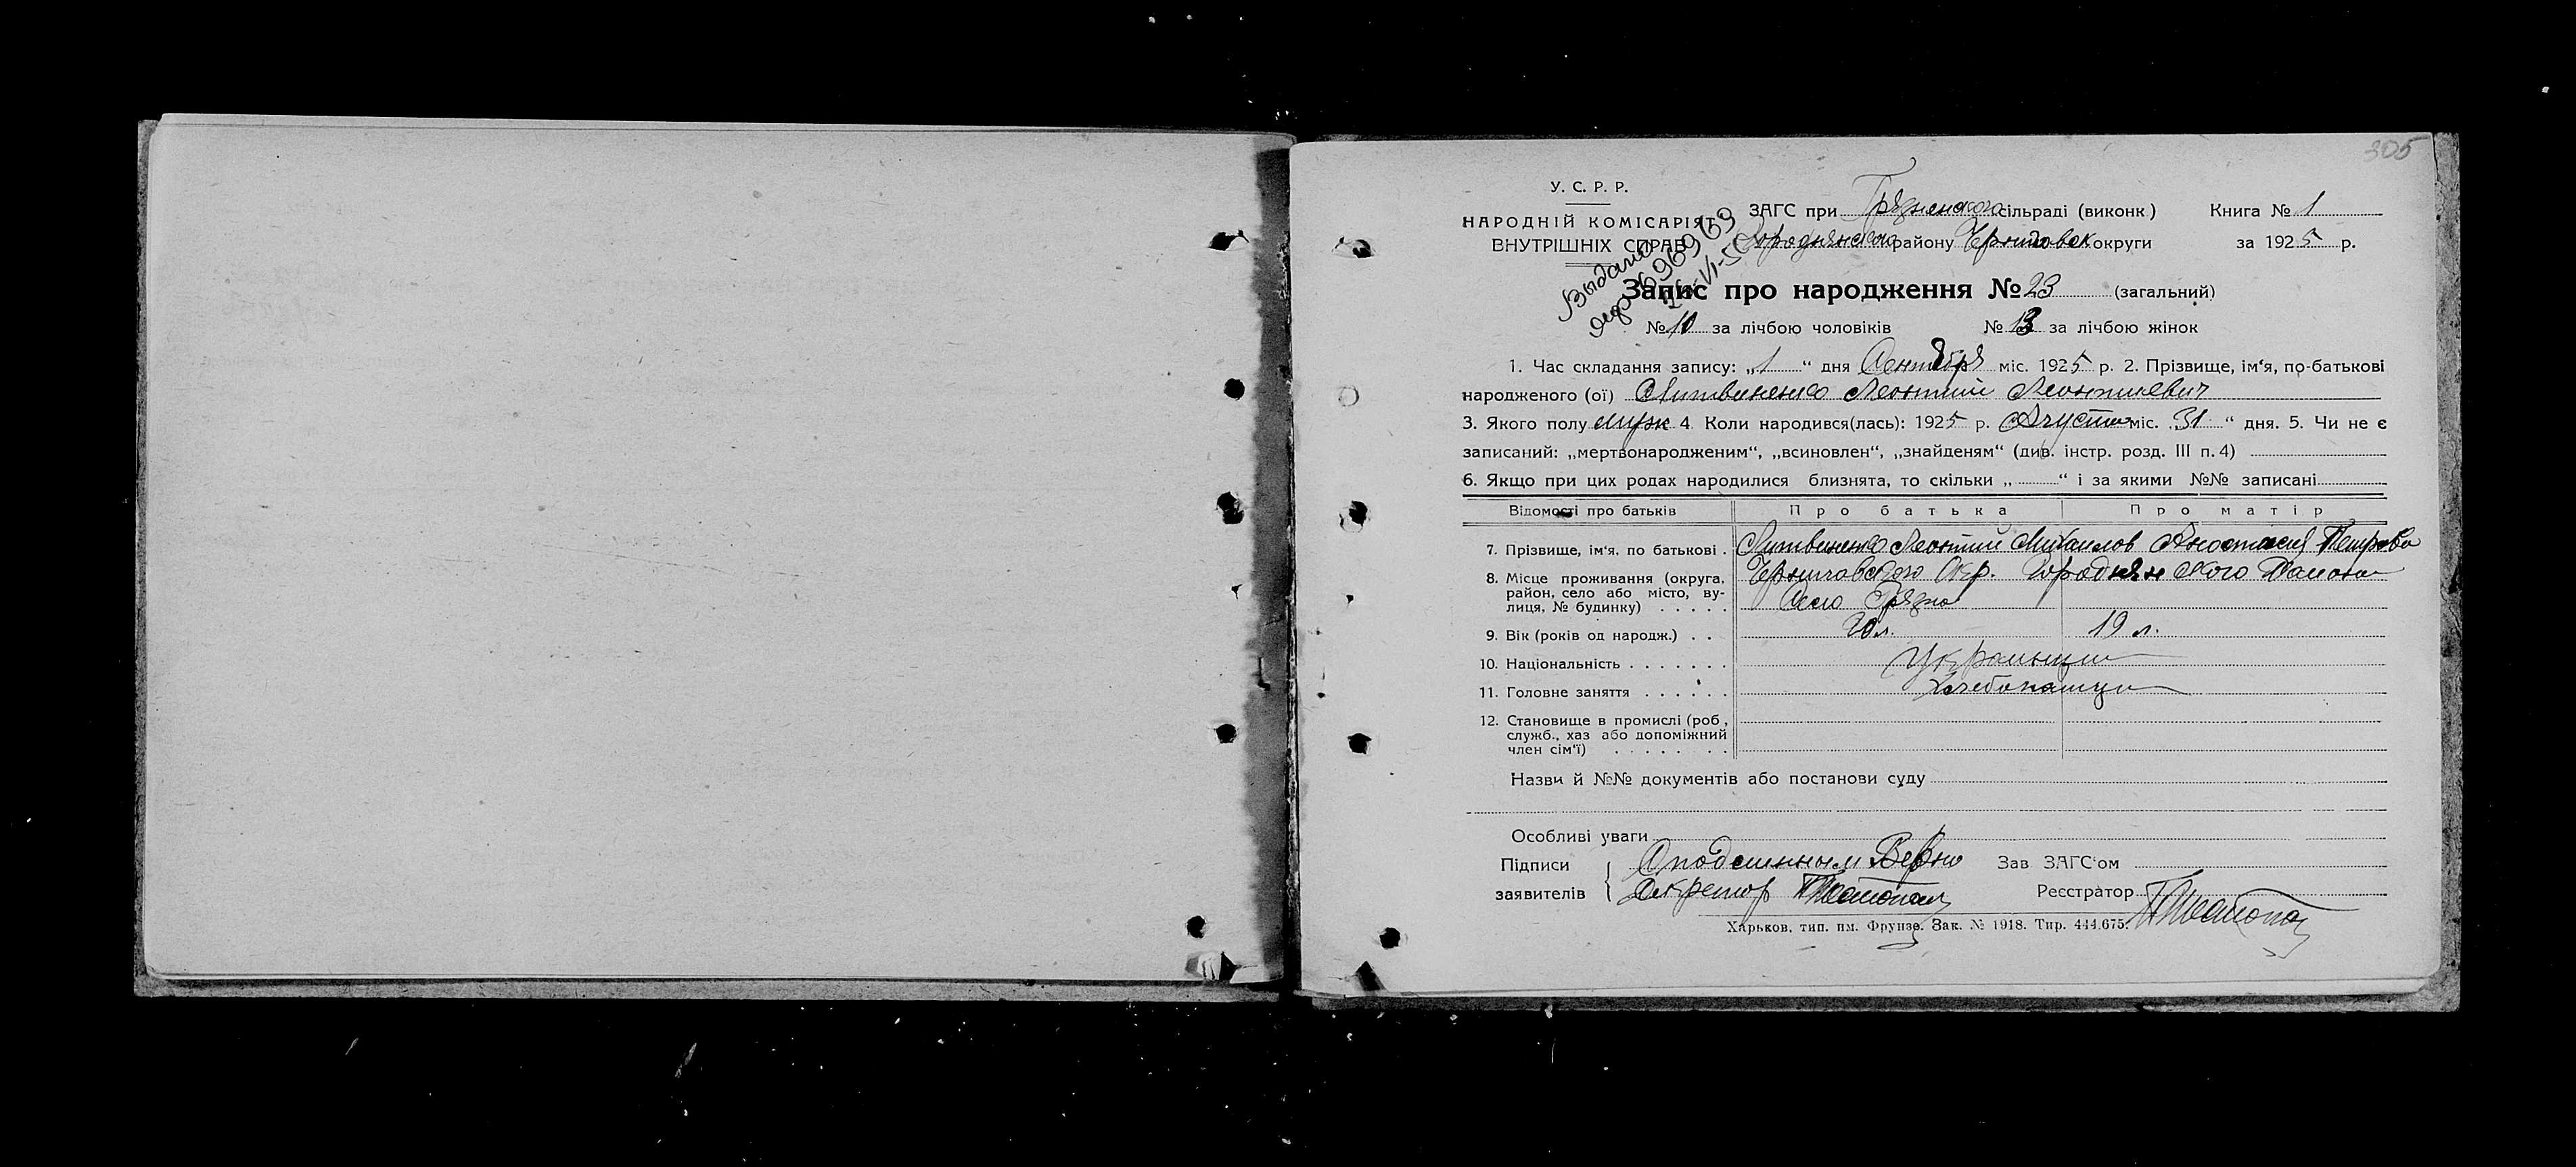 305
У. С. Р. Р.
НАРОДНІЙ КОМІСАРІЯТ
ВНУТРІШНІХ СПРАВ
ЗАГС при Грязненского сільраді (виконк) Книга № 1
Городнянского району Черниговск округи за 1925 р.
Выдано
696963
Запис про народження № 23 (загальний)
№ 10 за лічбою чоловіків № 13 за лічбою жінок
1. Час складання запису: „1“ дня Сентября міс. 1925 р. 2. Прізвище, ім‘я, по-батькові
народженого (ої) Литвиненко Леонтий Леонтиевич
3. Якого полу муж 4. Коли народився(лась): 1925 р. Августа міс. 31 “ дня. 5. Чи не є
записаний: „мертвонародженим“, „всиновлен“, „знайденям“ (див. інстр. розд. III п. 4)
6. Якщо при цих родах народилися близнята, то скільки „ “ і за якими №№ записані
Відомості про батьків Про батька Про матір
7. Прізвище, ім‘я, по батькові . Литвиненко Леонтий Михаилов Анастасия Петрова
8. Місце проживання (округа, Черниговского Окр. Городнянского Района
район, село або місто, ву-
лиця, № будинку) . . . . . Село Грязна
9. Вік (років од народж.) . . 20 л. 19 л.
10. Національність . . . . . . . Украинцы
11. Головне заняття . . . . . . Хлебопашцы
12. Становище в промислі (роб.,
служб., хаз або допоміжний
член сім‘ї) . . . . . . . .
Назви й №№ документів або постанови суду
Особливі уваги
Підписи С подлинным Верно Зав ЗАГС‘ом
заявителів Секретар Реєстратор
Харьков, тип. им. Фрунзе. Зак. № 1918. Тир. 444.675.